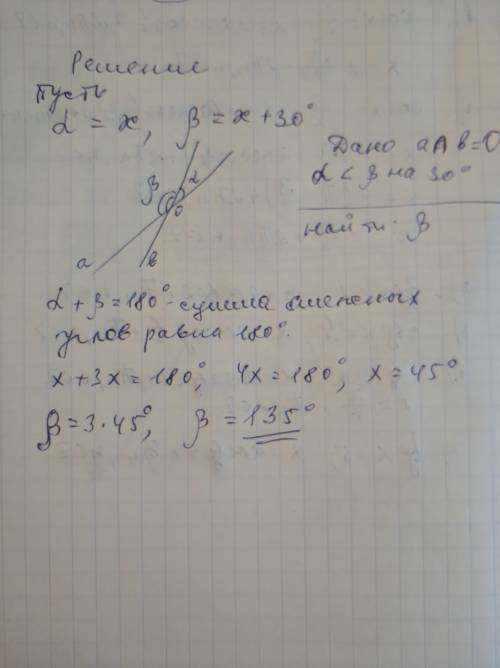 Решение
Пусть
α = x, β = x + 30°
Дано a∩b=O
α < β на 30°
найти: β
β α
o
a в
α + β = 180° - сумма смежных
углов равна 180°.
x + 3x = 180°, 4x = 180°, x = 45°
β = 3·45°, β = 135°